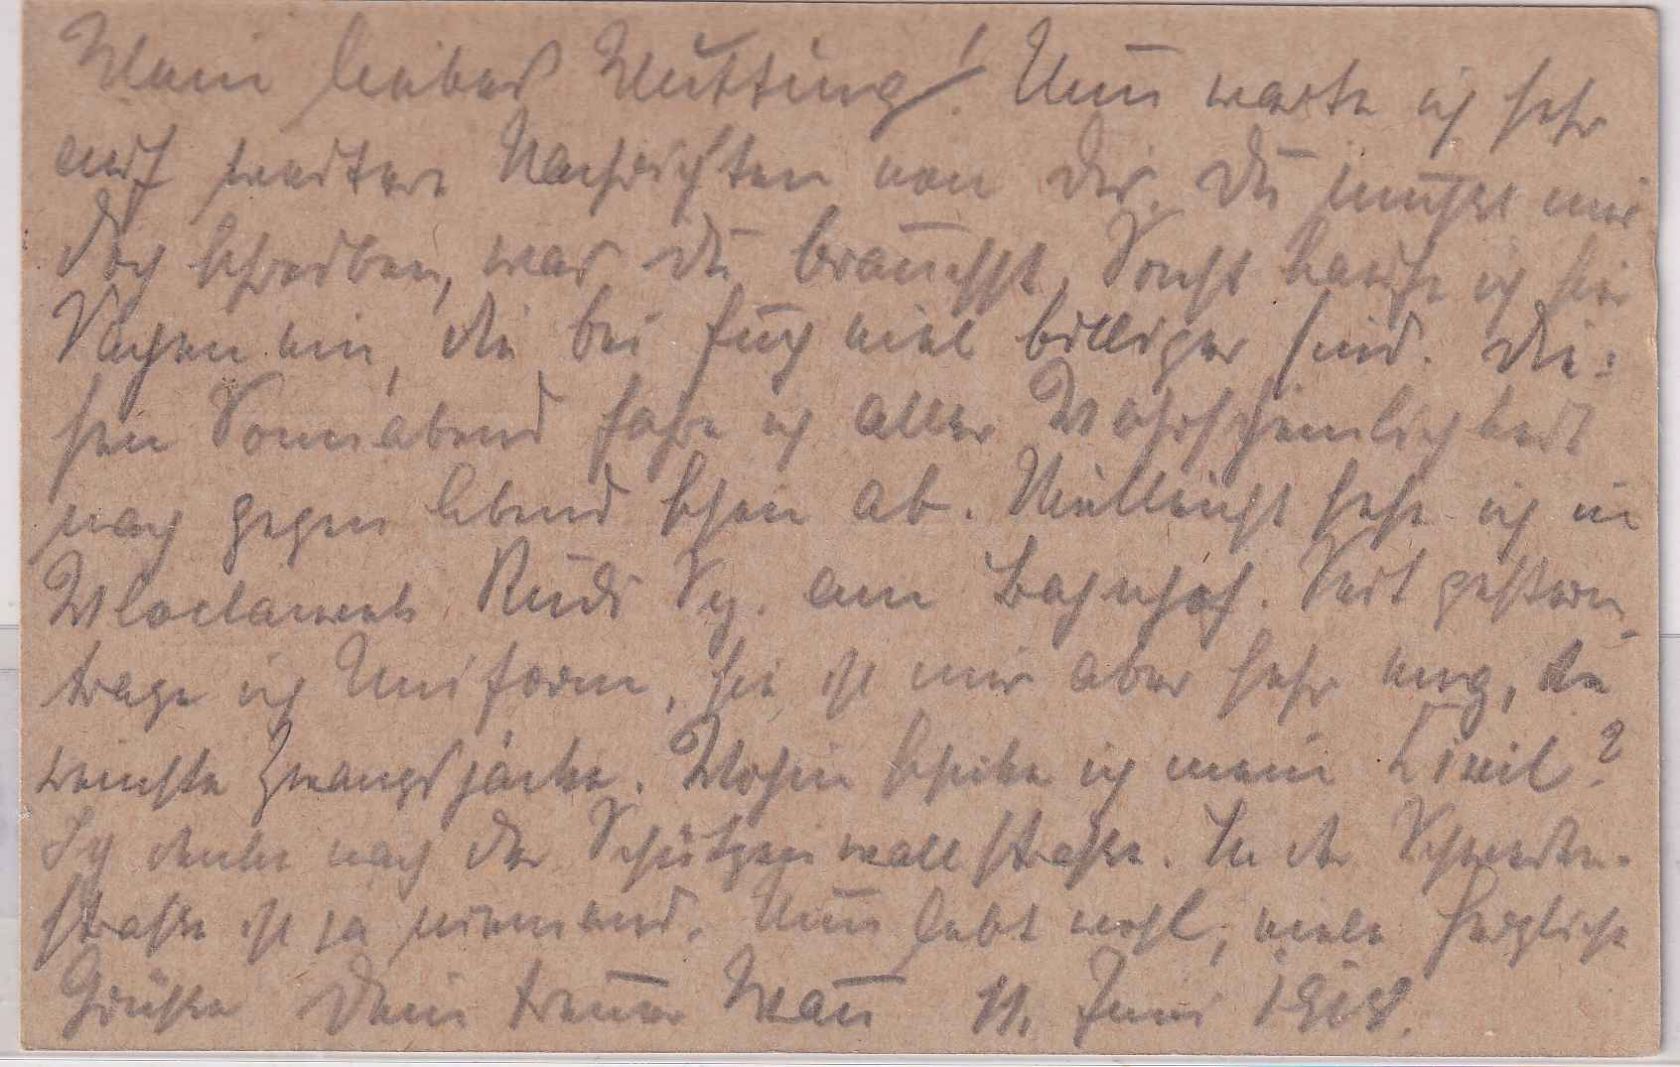 Mein liebes Mutting! Nun warte ich sehr
auf weitere Nachrichten von Dir. Du mußt mir
doch schreiben, was Du brauchst. Sonst kaufe ich hier
Sachen ein, die bei Euch viel billiger sind. Die-
sen Sonnabend fahre ich aller Wahrscheinlichkeit
nach gegen Abend schon ab. Vielleicht sehe ich in
Wloclawek Rudi Sch. am Bahnhof. Seit gestern
trage ich Uniform, sie ist mir aber sehr eng, die
reinste Zwangsjacke. Wohin schicke ich mein Zivil?
Ich denke nach der Schützenwallstraße. In der
straße ist ja niemand. Nun lebt wohl, viele herzliche
Grüße Dein treuer 11. Juni 1918.